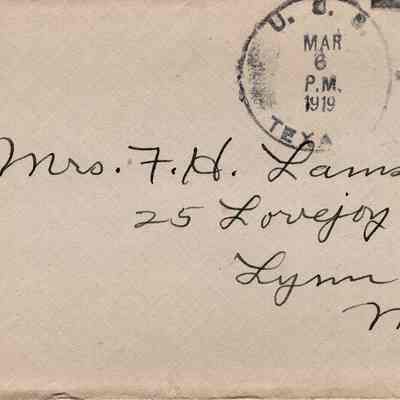 U. S. S.
MAR
6
P.M.
1919
TEXA
Mrs. F. H. Lams
25 Lovejoy
Lynn
M